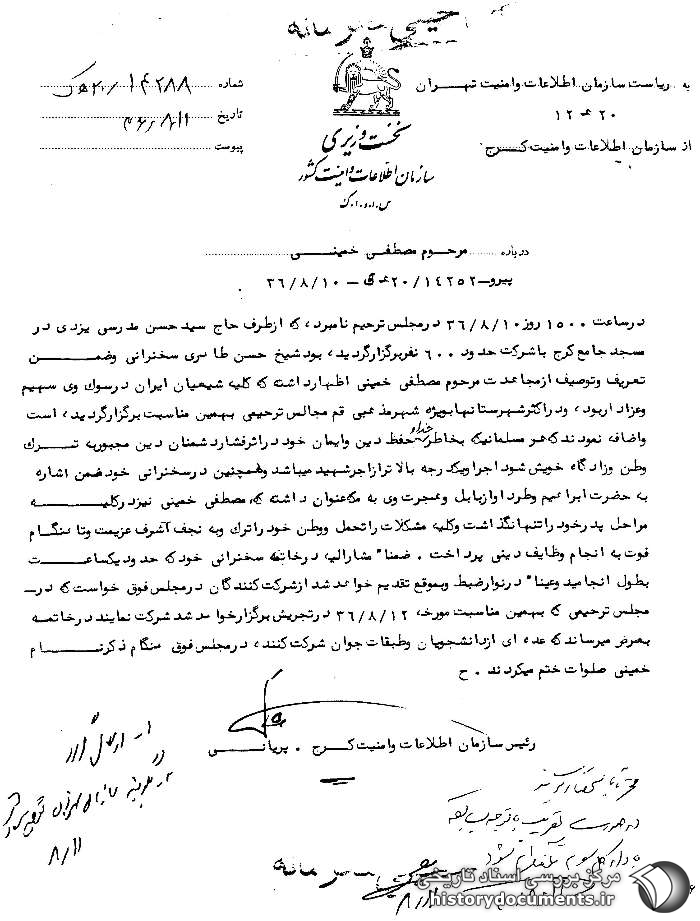 خیلی محرمانه
به ریاست سازمان اطلاعات وامنیت تهران
۲۰ هـ ۱۲
از سازمان اطلاعات وامنیت کرج
نخست وزیری
سازمان اطلاعات وامنیت کشور
س.ا.و.ا.ک
شماره ۱۴۲۸۸/۲۰هـ ک
تاریخ ۳۶/۸/۱۱
پیوست
درباره مرحوم مصطفی خمینی
پیرو ۲۰/۱۴۲۵۲هـ ک - ۳۶/۸/۱۰
درساعت ۱۵۰۰ روز ۳۶/۸/۱۰ درمجلس ترحیم نامبرده که ازطرف حاج سیدحسن مدرسی یزدی در
مسجد جامع کرج باشرکت حدود ۶۰۰ نفربرگزارگردیده بود شیخ حسن طاهری سخنرانی وضمن
تعریف وتوصیف ازمجاهدت مرحوم مصطفی خمینی اظهارداشته که کلیه شیعیان ایران درسوک وی سهیم
وعزاداربوده ودراکثرشهرستانهابویژه شهرمذهبی قم مجالس ترحیمی بهمین مناسبت برگزارگردیده است
واضافه نمودند که هر مسلمانیکه بخاطر خدا و حفظ دین وایمان خود دراثرفشاردشمنان دین مجبوربه ترک
وطن وزادگاه خویش شود اجراویکدرجه بالاترازاجرشهید میباشد وهمچنین درسخنرانی خود ضمن اشاره
به حضرت ابراهیم وطرد اوازبابل وهجرت وی به مکه عنوان داشته که مصطفی خمینی نیزدرکلیه
مراحل پدرخود راتنهانگذاشت وکلیه مشکلات راتحمل ووطن خود راترک وبه نجف اشرف عزیمت وتا هنگام
فوت به انجام وظایف دینی پرداخت . ضمنا" مشارالیه درخاتمه سخنرانی خود که حدود یکساعت
بطول انجامید وعینا" درنوارضبط وبموقع تقدیم خواهد شد ازشرکت کنندگان درمجلس فوق خواست که در
مجلس ترحیمی که بهمین مناسبت مورخه ۳۶/۸/۱۲ درتجریش برگزارخواهد شد شرکت نمایند درخاتمه
بعرض میرساند که عده ای ازدانشجویان وطبقات جوان شرکت کننده درمجلس فوق هنگام ذکرنام
خمینی صلوات ختم میکردند . ح
رئیس سازمان اطلاعات وامنیت کرج . پریانی
۸/۱۱
خیلی محرمانه
۸/۱۱
مرکز بررسی اسناد تاریخی
historydocuments.ir